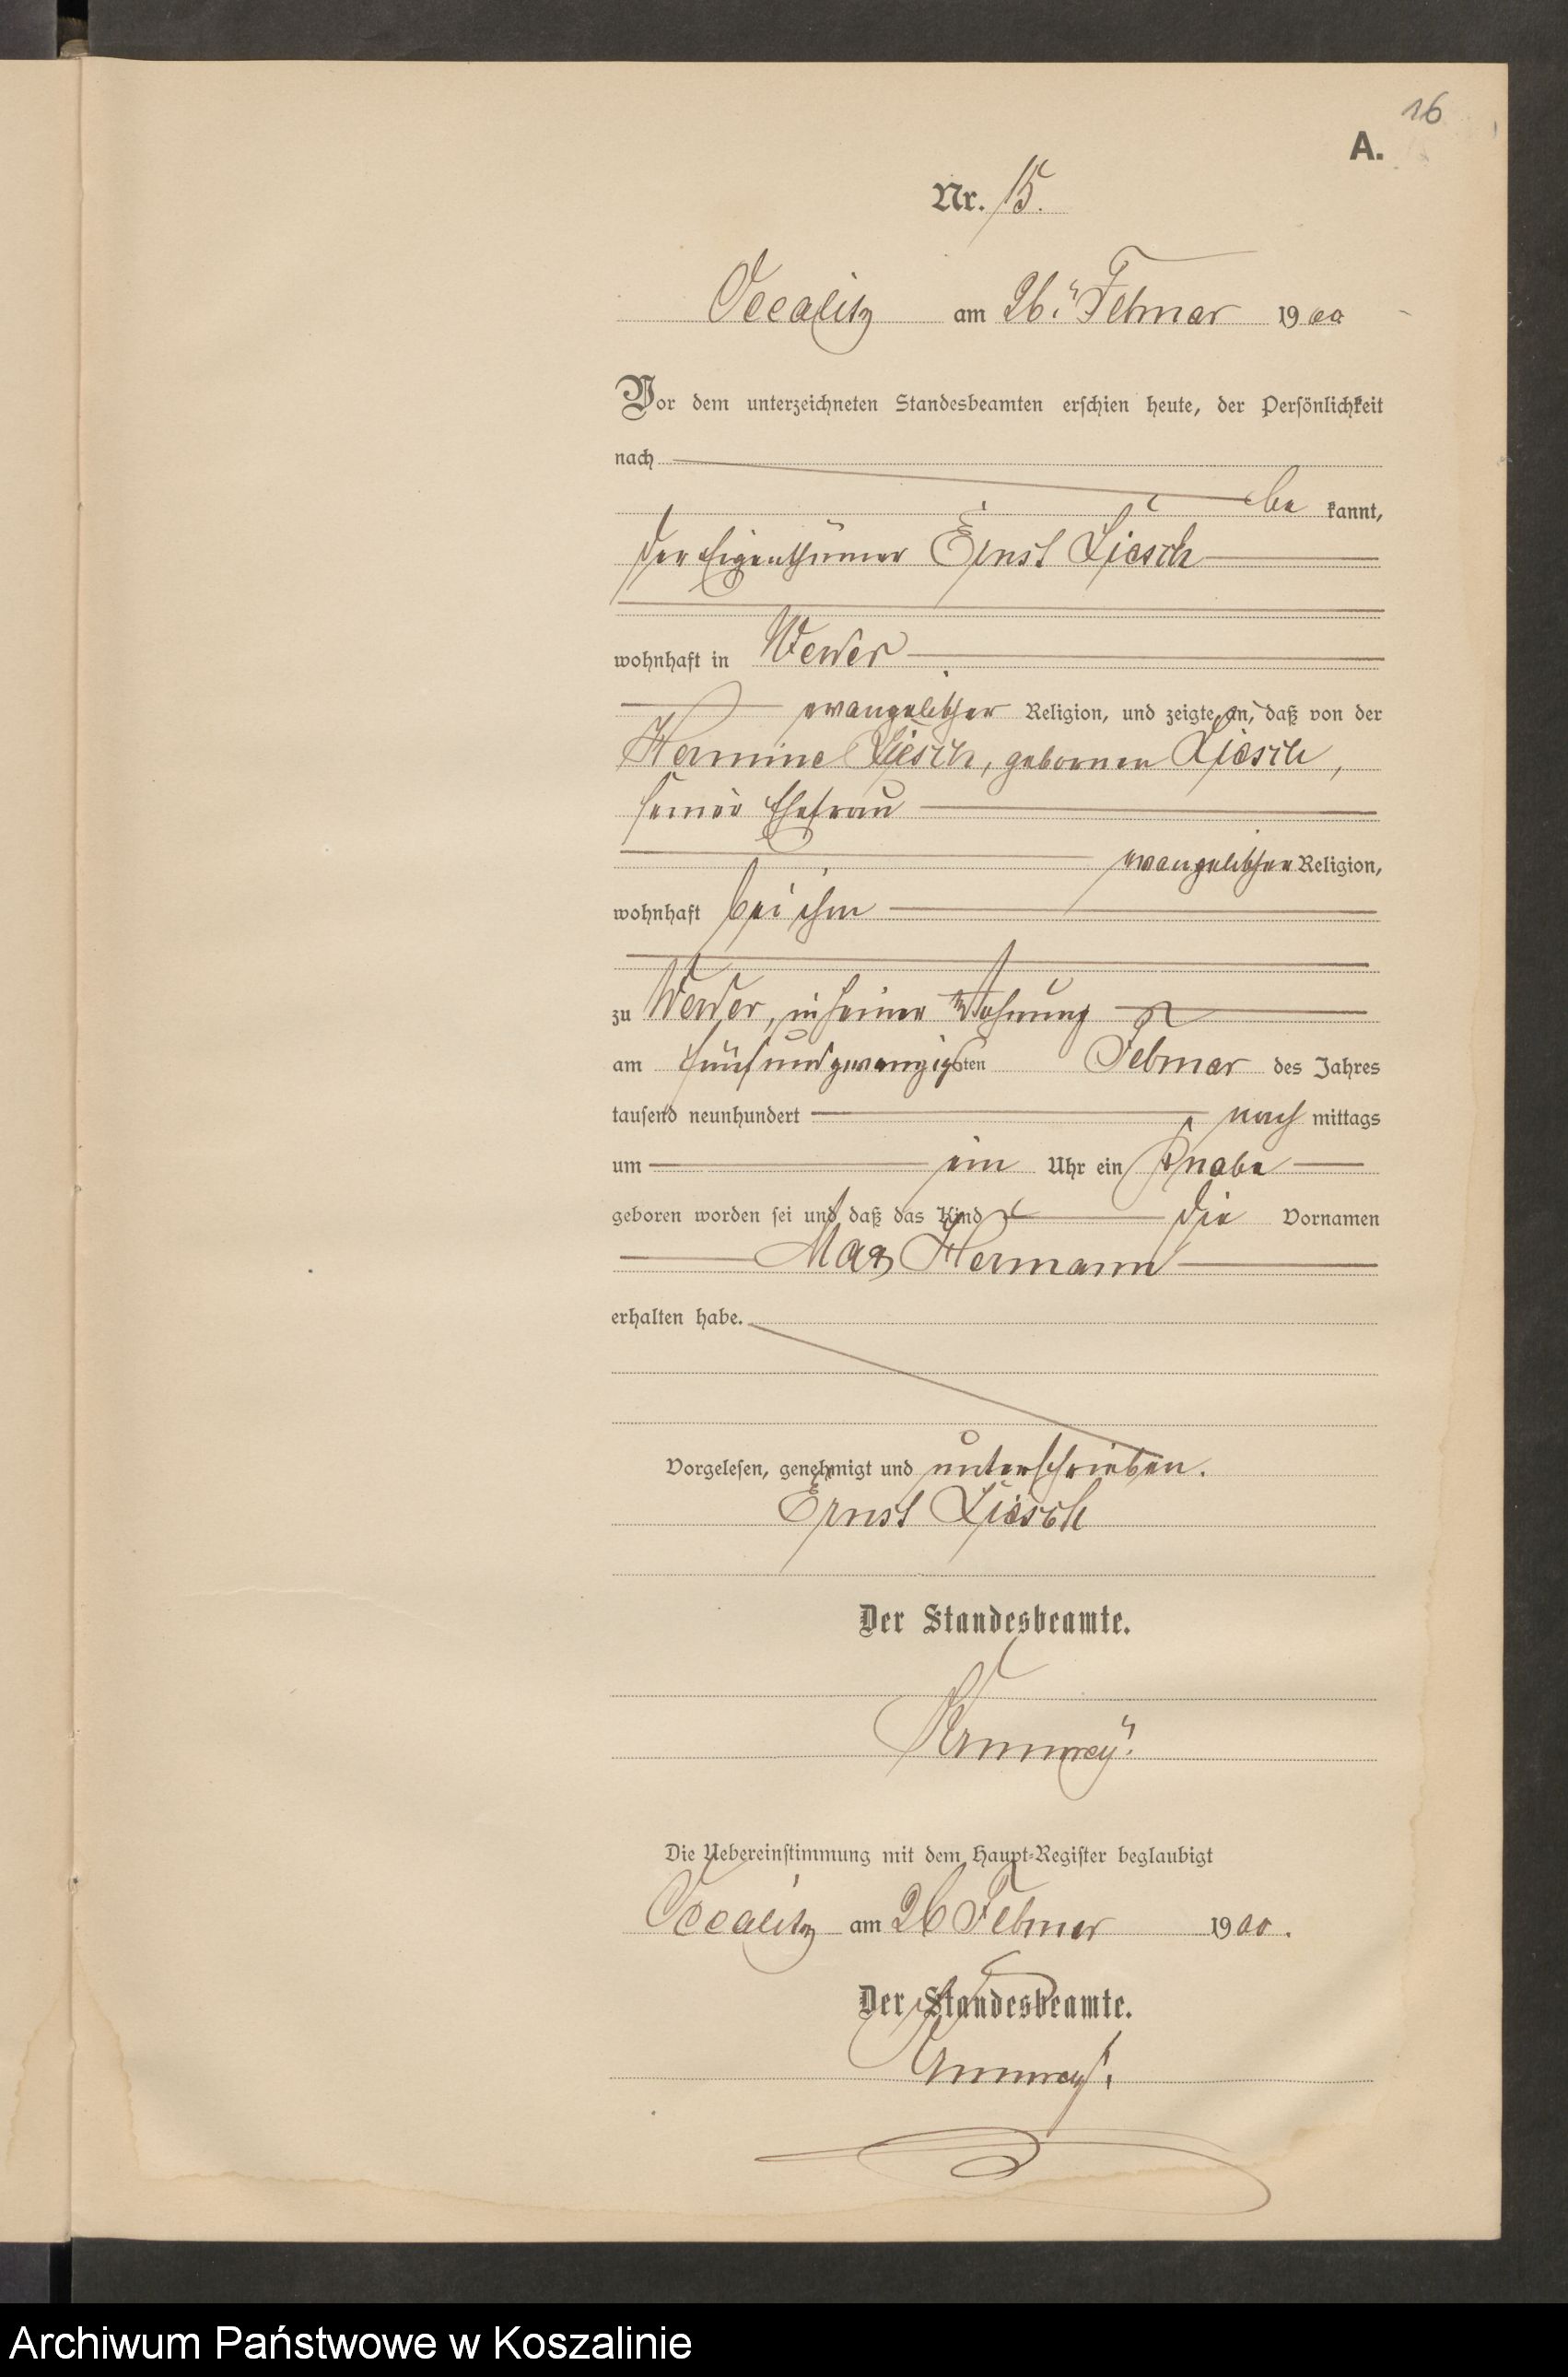 16
A.
Nr. 15.
Occalitz am 26. Februar 1900
Vor dem unterzeichneten Standesbeamten erschien heute, der Persönlichkeit
nach
be kannt,
der Eigenthümer Ernst Liesch
wohnhaft in Werder
evangelischer Religion, und zeigte an, daß von der
Hermine Liesch, gebornen Liesch,
seiner Ehefrau
evangelischer Religion,
wohnhaft bei ihm
zu Werder, in seiner Wohnung
am fünfundzwanzigsten Februar des Jahres
tausend neunhundert nach mittags
um ein Uhr ein Knabe
geboren worden sei und daß das Kind die Vornamen
Max Hermann
erhalten habe.
Vorgelesen, genehmigt und unterschrieben.
Ernst Liesch
Der Standesbeamte.
Die Uebereinstimmung mit dem Haupt-Register beglaubigt
Occalitz am 26 Februar 1900.
Der Standesbeamte.
Archiwum Państwowe w Koszalinie